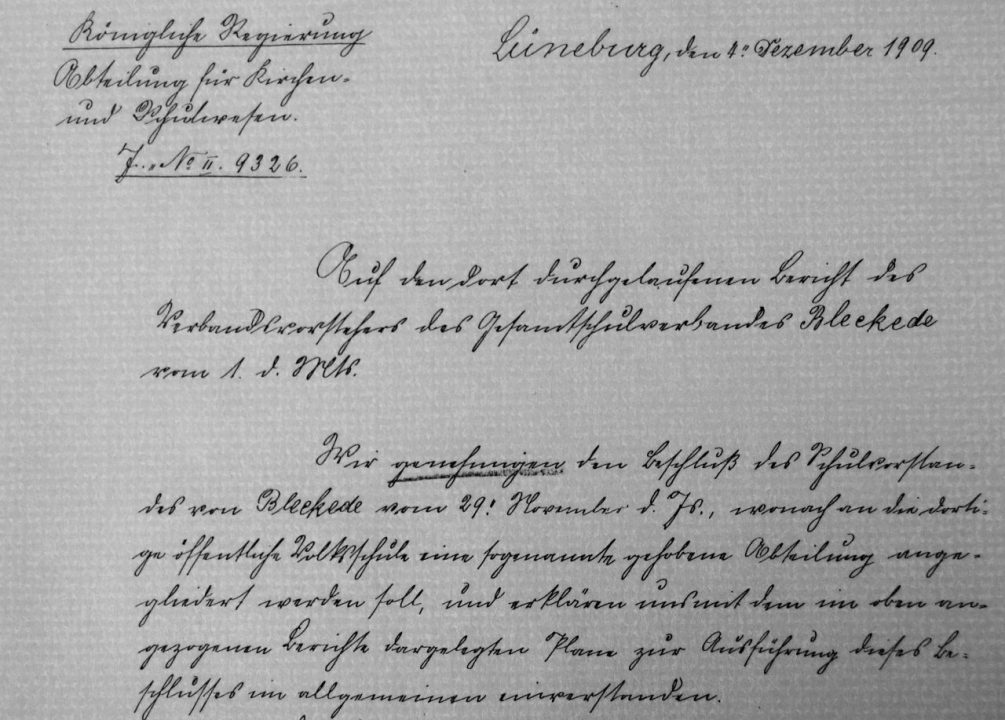 Königliche Regierung
Abteilung für Kirchen-
und Schulwesen.
J. No II. 9326.
Lüneburg, den 4. Dezember 1909.
Auf den dort durchgelaufenen Bericht des
Verbandsvorstehers des Gesamtschulverbandes Bleckede
vom 1. d. Mts.
Wir genehmigen den Beschluß des Schulvorstan-
des von Bleckede vom 29. November d. Js., wonach an die dorti-
ge öffentliche Volksschule eine sogenannte gehobene Abteilung ange-
gliedert werden soll, und erklären uns mit dem im oben an-
gezogenen Berichte dargelegten Plane zur Ausführung dieses Be-
schlusses im allgemeinen einverstanden.